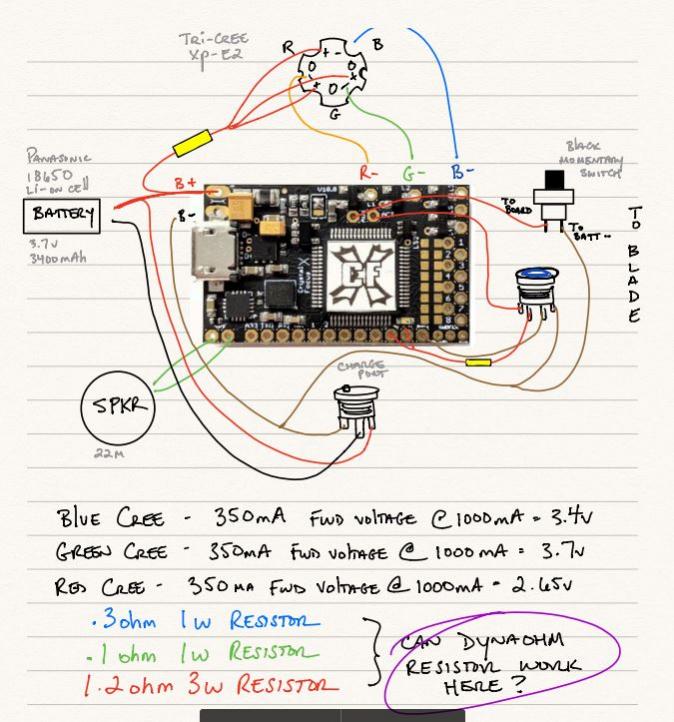 TRI-CREE
XP-E2
R
B
G
PANASONIC
18650
LI-ON CELL
BATTERY
3.7V
3400mAh
B+
B-
R-
G-
B-
BLACK
MOMENTARY
SWITCH
TO
BOARD
TO
BATT -
TO BLADE
CF
CHARGE
PORT
SPKR
22M
BLUE CREE - 350mA FWD VOLTAGE @ 1000mA = 3.4V
GREEN CREE - 350mA FWD VOLTAGE @ 1000mA = 3.7V
RED CREE - 350MA FWD VOLTAGE @ 1000mA = 2.65V
.3ohm 1W RESISTOR
.1ohm 1W RESISTOR
1.2ohm 3W RESISTOR
CAN DYNAOHM
RESISTOR WORK
HERE?